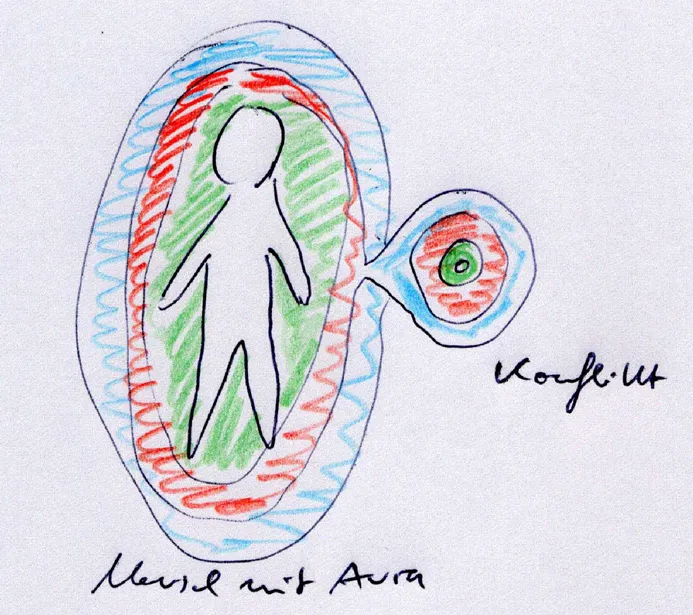 Konflikt
Mensch mit Aura